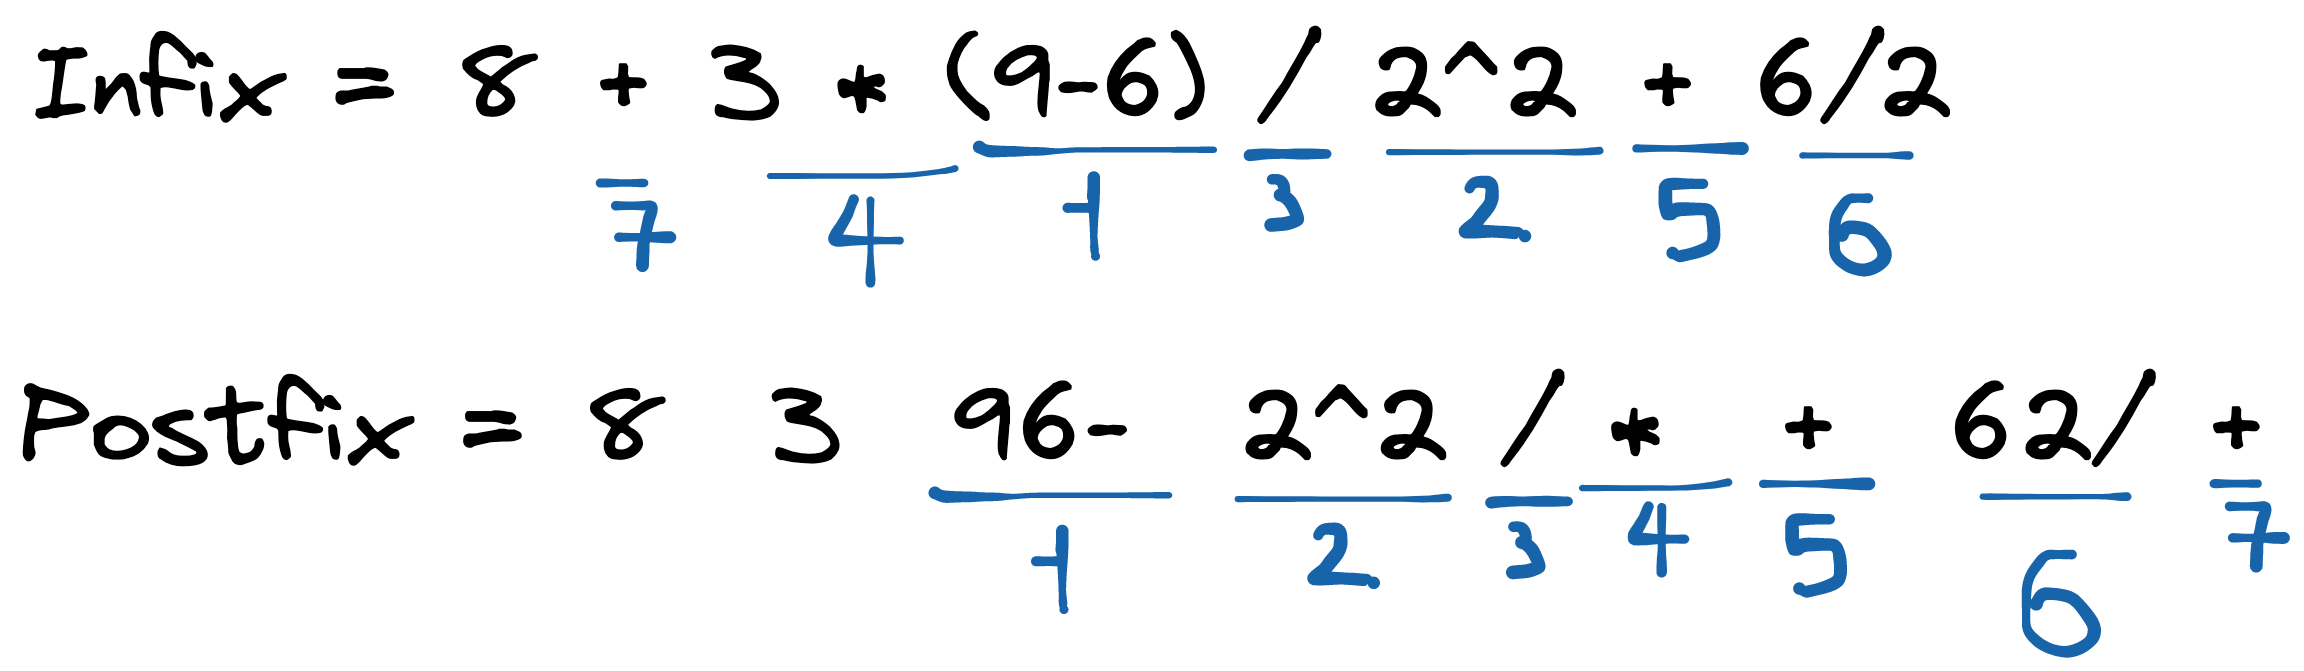 Infix = 8 + 3 * (9-6) / 2^2 + 6/2
7 4 1 3 2 5 6
Postfix = 8 3 96- 2^2 / * + 62/ +
1 2 3 4 5 6 7